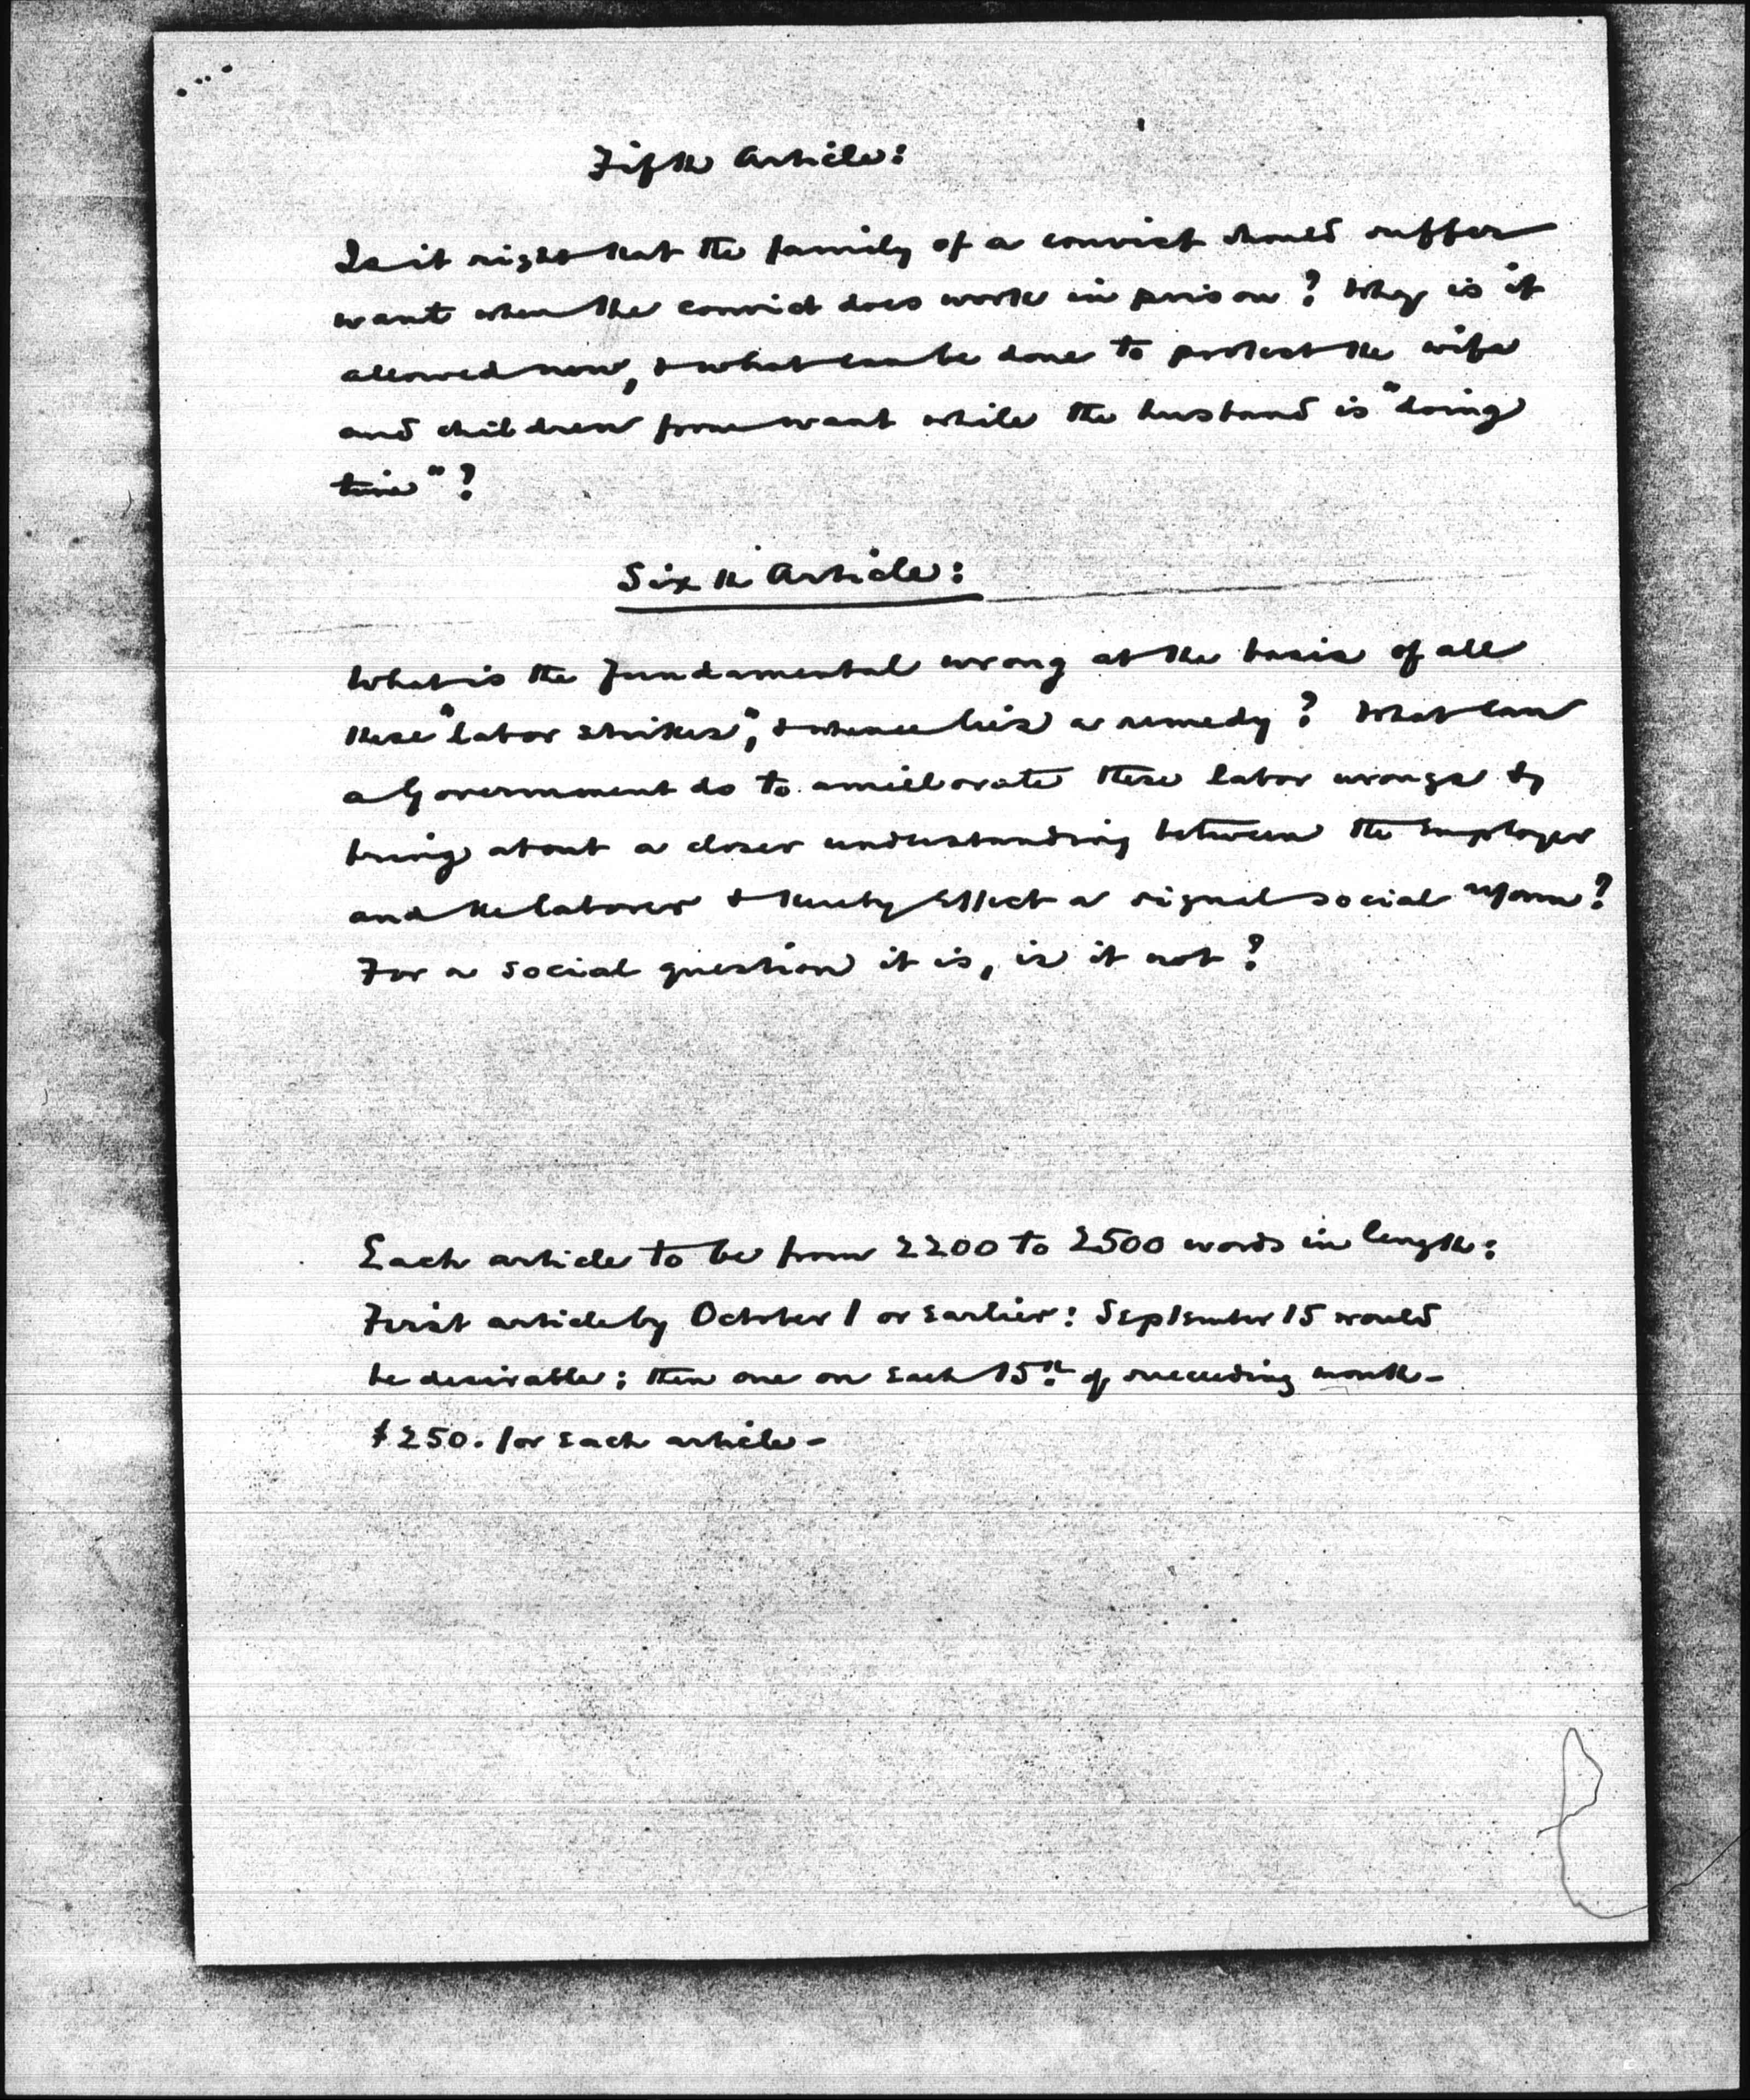 Fifth Article:
Is it right that the family of a convict should suffer
want when the convict does work in prison? Why is it
allowed now, & what can be done to protect the wife
and children from want while the husband is "doing
time"?
Sixth Article:
What is the fundamental wrong at the basis of all
these "labor strikes", & whence lies a remedy? What can
a Government do to amiellorate these labor wrongs &
bring about a closer understanding between the Employer
and the laborer & thereby Effect a signal social reform?
For a social question it is, is it not?
Each article to be from 2200 to 2500 words in length:
First article by October 1 or Earlier: September 15 would
be desirable: then one on Each 15th of succeeding month –
$250. for Each article –